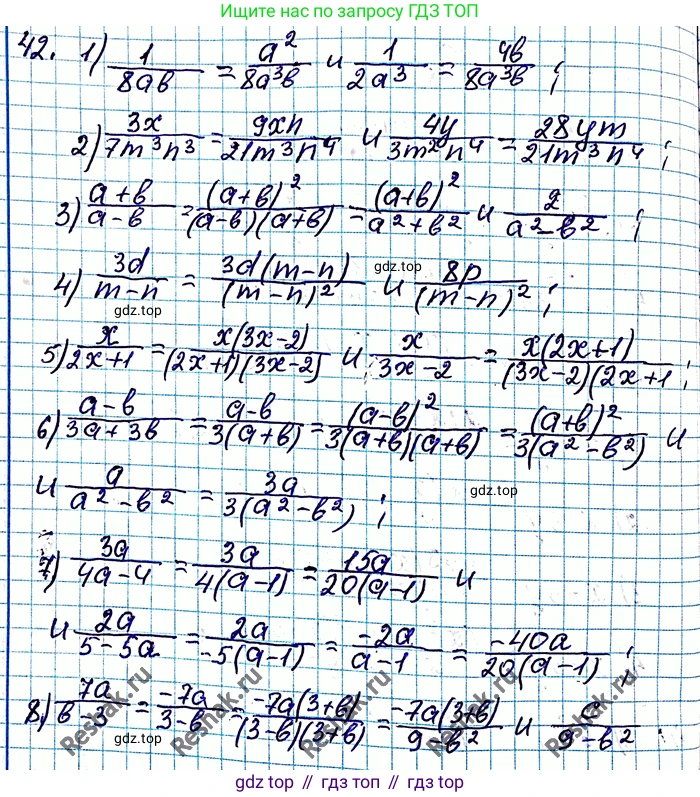 Ищите нас по запросу ГДЗ ТОП
42. 1) 1/(8ab) = a²/(8a³b) и 1/(2a³) = 4b/(8a³b) ;
2) 3x/(7m³n³) = 9xn/(21m³n⁴) и 4y/(3m²n⁴) = 28ym/(21m³n⁴) ;
3) (a+b)/(a-b) = (a+b)²/((a-b)(a+b)) = (a+b)²/(a²+b²) и 2/(a²-b²) ;
4) 3d/(m-n) = 3d(m-n)/(m-n)² и 8p/(m-n)² ;
gdz.top
gdz.top
5) x/(2x+1) = x(3x-2)/((2x+1)(3x-2)) и x/(3x-2) = x(2x+1)/((3x-2)(2x+1 ;
6) (a-b)/(3a+3b) = (a-b)/(3(a+b)) = (a-b)²/(3(a+b)(a+b)) = (a+b)²/(3(a²-b²)) и
и a/(a²-b²) = 3a/(3(a²-b²)) ;
gdz.top
7) 3a/(4a-4) = 3a/(4(a-1)) = 15a/(20(a-1)) и
и 2a/(5-5a) = 2a/(-5(a-1)) = -2a/(a-1) = -40a/(20(a-1)) ;
8) 7a/(b-3) = -7a/(3-b) = -7a(3+b)/((3-b)(3+b)) = -7a(3+b)/(9-b²) и /(9-b²) .
gdz.top
gdz.top
Reshak.ru
Reshak.ru
Reshak.ru
gdz top // гдз топ // gdz.top